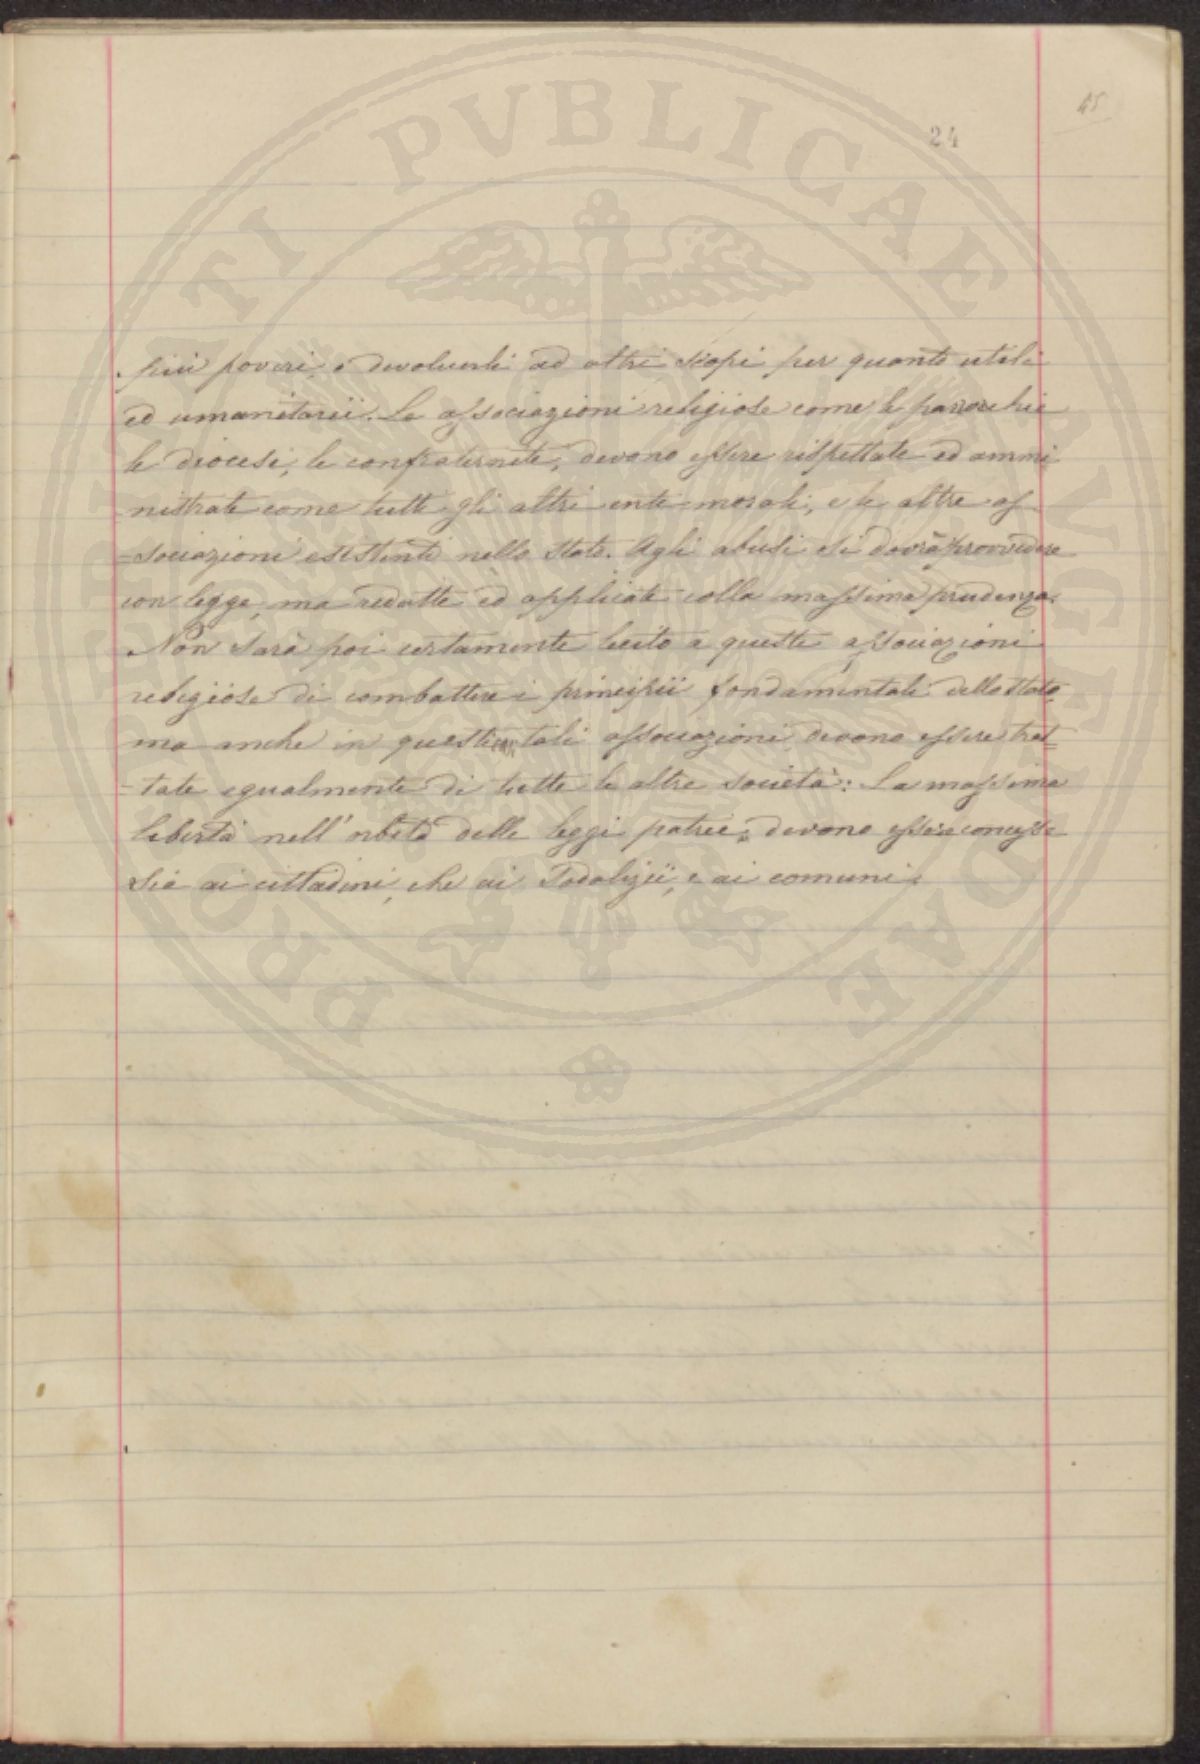 45
24
più poveri, e devolverli ad altri scopi per quanto utili
ed umanitarii. Le associazioni religiose come le parrocchie
le diocesi, le confraternite, devono essere rispettate ed ammi
nistrate come tutti gli altri enti morali, e le altre as
=sociazioni esistenti nello Stato. Agli abusi si dovrà provvedere
con legge, ma redatte ed applicate colla massima prudenza.
Non sarà poi certamente lecito a queste associazioni
religiose di combattere i principii fondamentali dello Stato
ma anche in questi tali associazioni devono essere trat=
=tate egualmente di tutte le altre società: La massima
libertà nell' delle leggi patrie, devono essere concesse
sia ai cittadini, che ai Sodalizii, e ai comuni.
PROBITATI PVBLICAE AVGENDAE